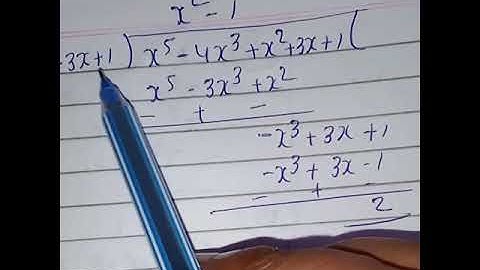 x² - 1
-3x+1 ) x⁵ - 4x³ + x² + 3x + 1 (
x⁵ - 3x³ + x²
- + -
-x³ + 3x + 1
-x³ + 3x - 1
- + 
2